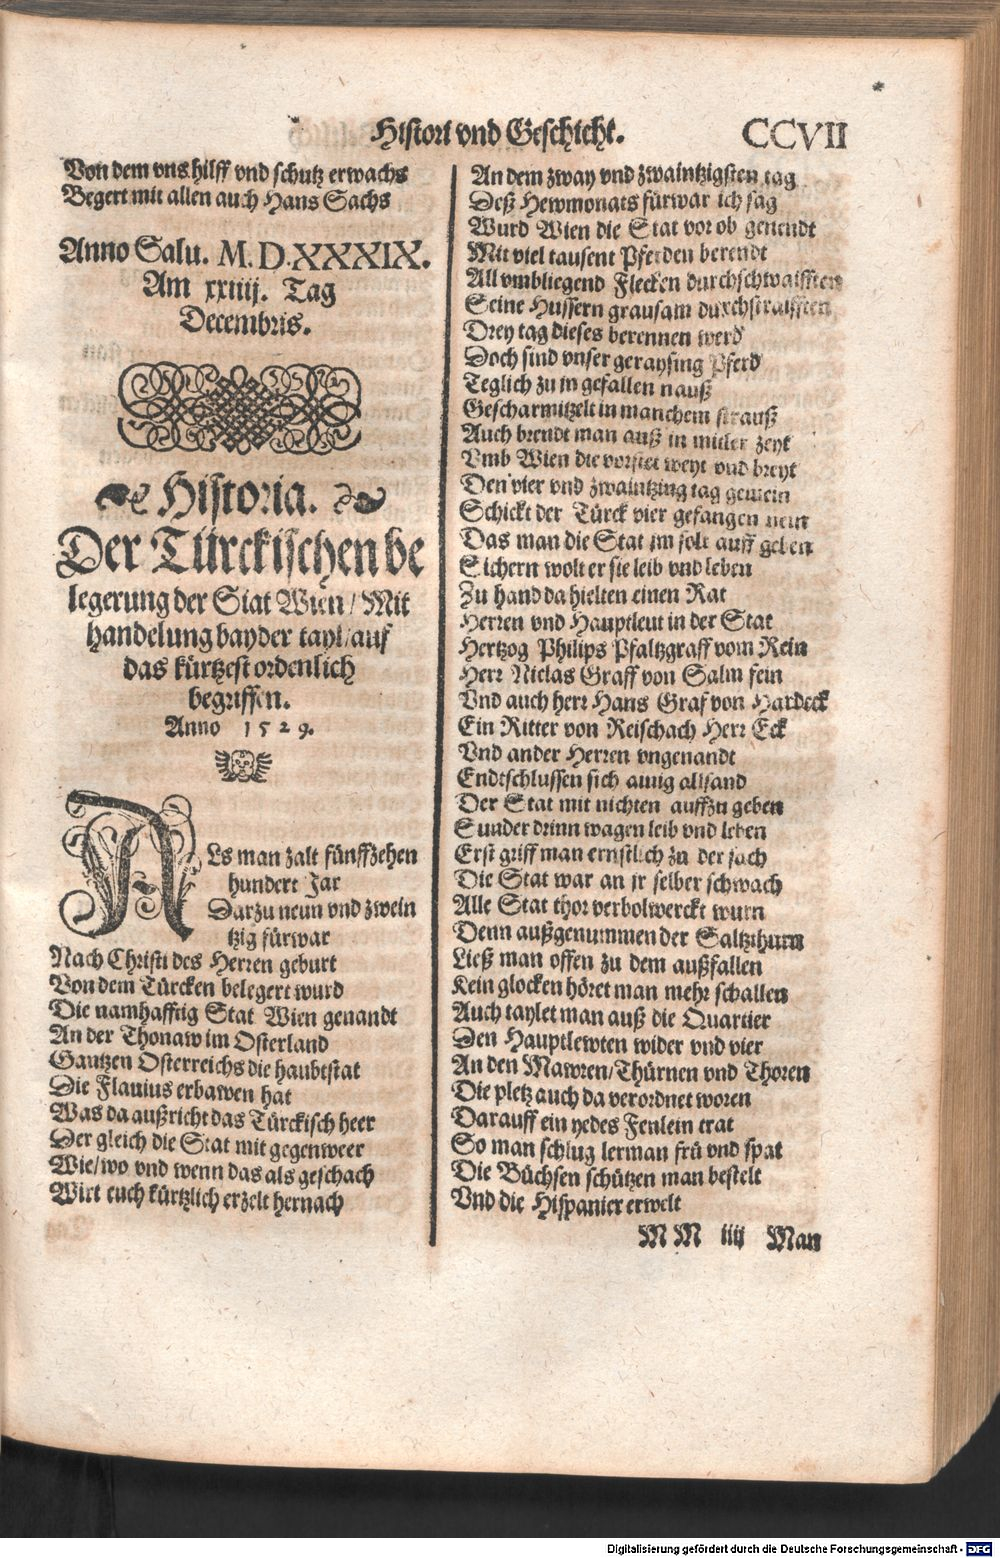 Histori vnd Geschicht.
CCVII
Von dem vns hilff vnd schutz erwachs
Begert mit allen auch Hans Sachs
Anno Salu. M.D.XXXIX.
Am xxiiij. Tag
Decembris.
Historia.
Der Türckischen be
legerung der Stat Wien/Mit
handelung bayder tayl/auf
das kürtzest ordenlich
begriffen.
Anno 1529.
ALs man zalt fünffzehen
hundert Jar
Darzu neun vnd zwein
tzig fürwar
Nach Christi des Herren geburt
Von dem Türcken belegert wurd
Die namhafftig Stat Wien genandt
An der Thonaw im Osterland
Gantzen Osterreichs die haubtstat
Die Flauius erbawen hat
Was da außricht das Türckisch heer
Der gleich die Stat mit gegenweer
Wie/wo vnd wenn das als geschach
Wirt euch kürtzlich erzelt hernach
An dem zway vnd zwaintzigsten tag
Deß Hewmonats fürwar ich sag
Wurd Wien die Stat vor ob genendt
Mit viel tausent Pferden berendt
All vmbliegend Flecken durchschwaifften
Seine Hussern grausam durchstraifften
Drey tag dieses berennen werd
Doch sind vnser geraysing Pferd
Teglich zu in gefallen nauß
Gescharmitzelt in manchem strauß
Auch brendt man auß in mitler zeyt
Vmb Wien die vorstet weyt vnd breyt
Den vier vnd zwaintzing tag gemein
Schickt der Türck vier gefangen nein
Das man die Stat im solt auff geben
Sichern wolt er sie leib vnd leben
Zu hand da hielten einen Rat
Herren vnd Hauptleut in der Stat
Hertzog Philips Pfaltzgraff vom Rein
Herr Niclas Graff von Salm fein
Vnd auch herr Hans Graf von Hardeck
Ein Ritter von Reischach Herr Eck
Vnd ander Herren vngenandt
Endtschlussen sich ainig allsand
Der Stat mit nichten auffzu geben
Sunder drinn wagen leib vnd leben
Erst griff man ernstlich zu der sach
Die Stat war an ir selber schwach
Alle Stat thor verbolwerckt wurn
Denn außgenummen der Saltzthurn
Ließ man offen zu dem außfallen
Kein glocken höret man mehr schallen
Auch taylet man auß die Quartier
Den Hauptlewten wider vnd vier
An den Mawren/Thürnen vnd Thoren
Die pletz auch da verordnet woren
Darauff ein yedes Fenlein trat
So man schlug lerman frü vnd spat
Die Büchsen schützen man bestelt
Vnd die Hispanier erwelt
MM iiij Man
Digitalisierung gefördert durch die Deutsche Forschungsgemeinschaft - DFG